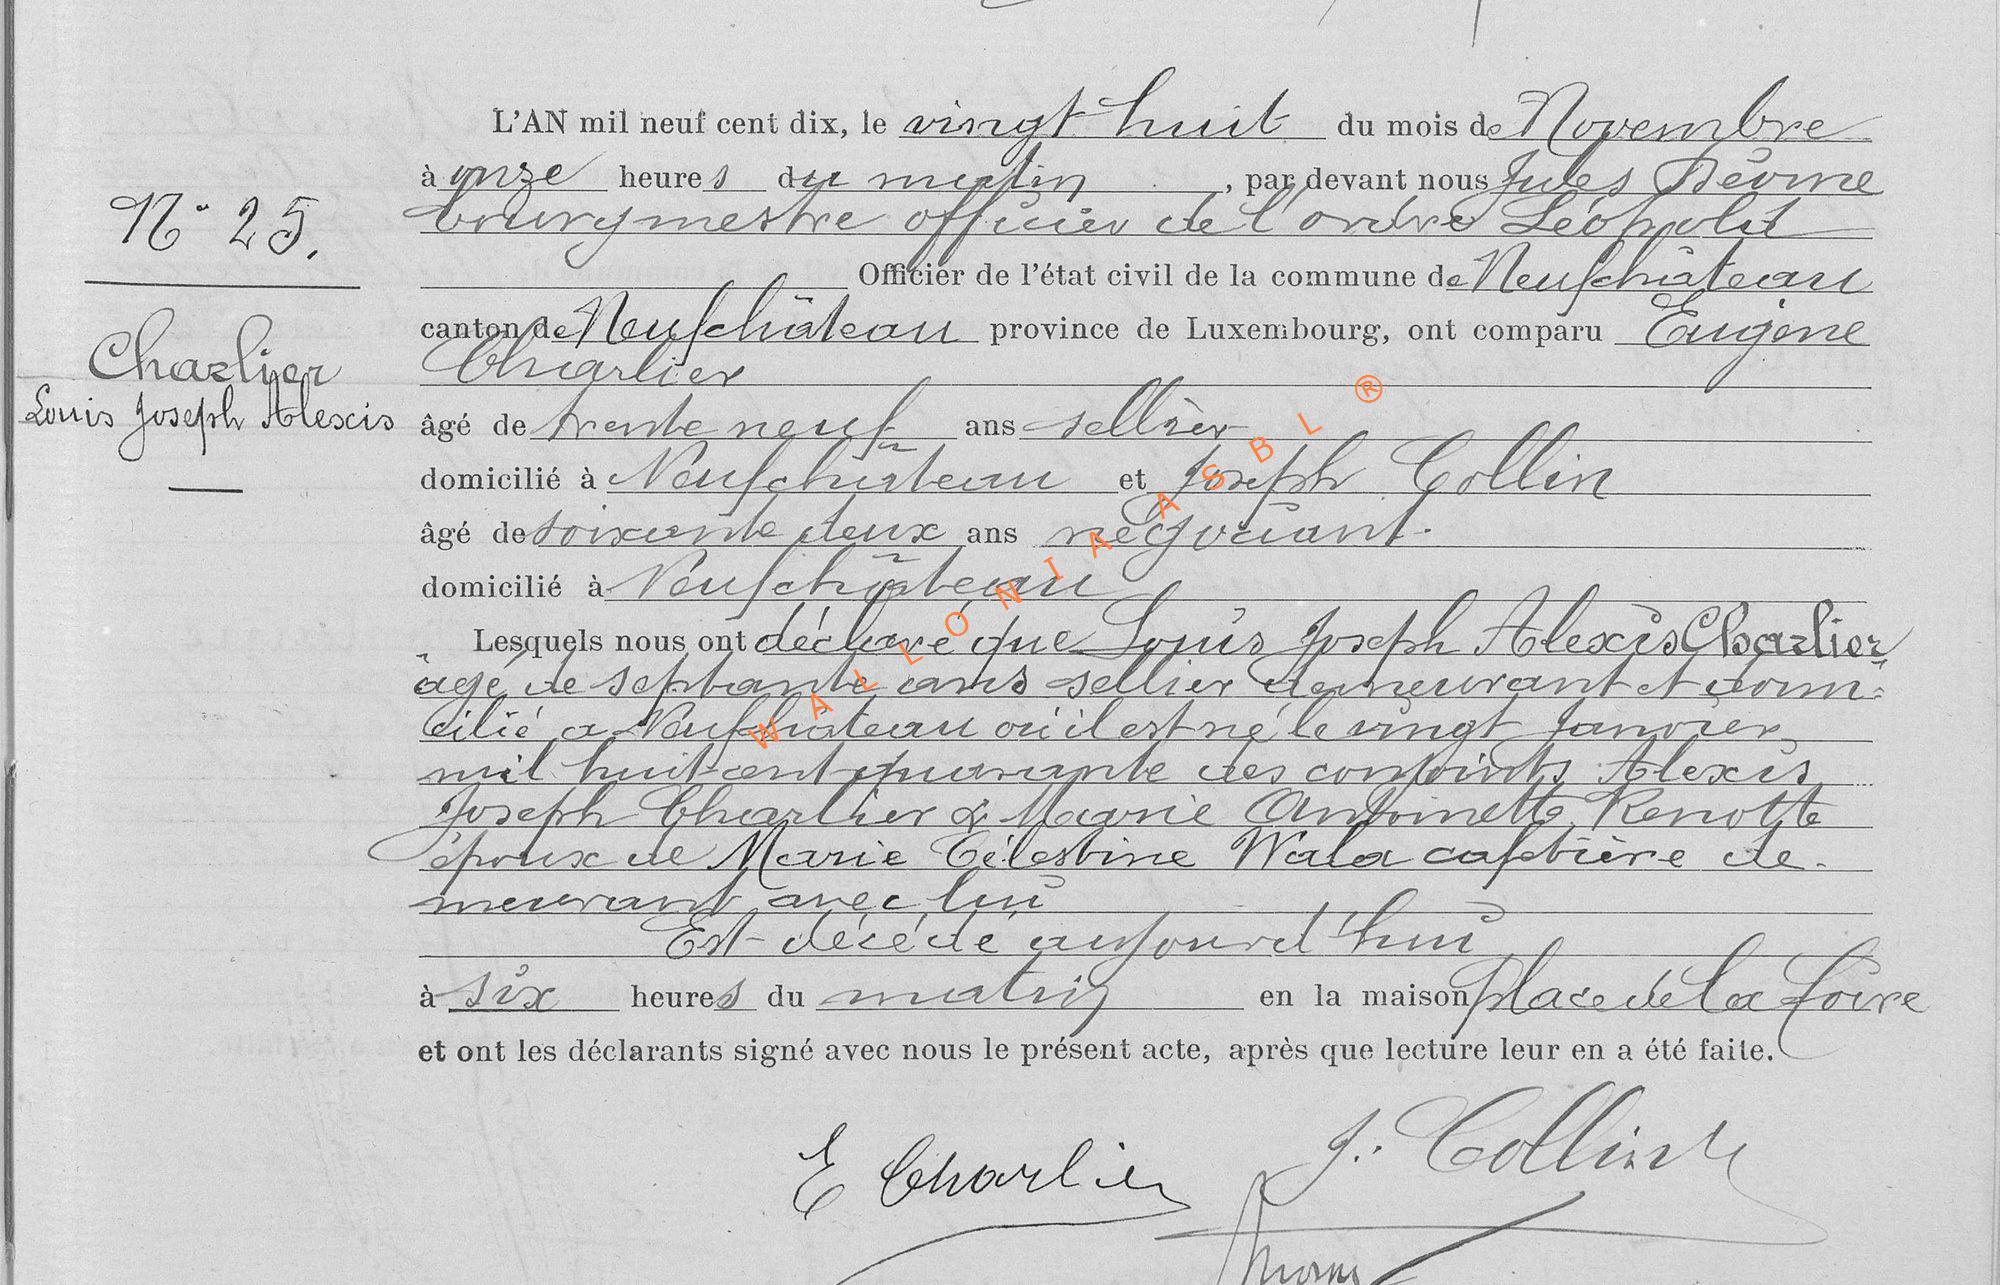 L'AN mil neuf cent dix, le vingt huit du mois de Novembre
à onze heures du matin, par devant nous Jules
N° 25.
bourgmestre officier de l'ordre Léopold
Officier de l'état civil de la commune de Neufchâteau
canton de Neufchâteau province de Luxembourg, ont comparu Eugène
Charlier
Charlier
Louis Joseph Alexis
âgé de trente neuf ans sellier
domicilié à Neufchâteau et Joseph Collin
âgé de soixante deux ans négociant.
domicilié à Neufchâteau
Lesquels nous ont déclaré que Louis Joseph Alexis Charlier
âgé de septante ans sellier demeurant et domi=
cilié a Neufchâteau où il est né le vingt Janvier
mil huit cent quarante des conjoints Alexis
Joseph Charlier & Marie Antoinette Renotte
époux de Marie Célestine Wala cafetière de-
meurant avec lui
Est décédé aujourd'hui
à six heures du matin en la maison place de la Foire
et ont les déclarants signé avec nous le présent acte, après que lecture leur en a été faite.
J. Collin
E Charlier
WALLONIA ASBL ®